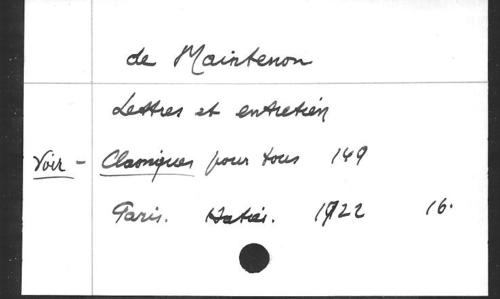 de Maintenon
Lettres et entretien
Voir - Classiques pour tous 149
Paris. Hatier. 1922 16.